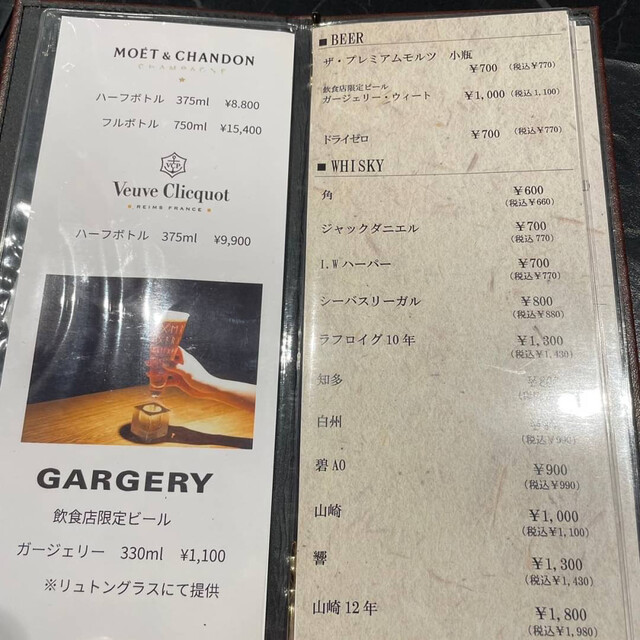 MOËT & CHANDON
CHAMPAGNE
ハーフボトル 375ml ¥8.800
フルボトル 750ml ¥15,400
VCP
Veuve Clicquot
REIMS FRANCE
ハーフボトル 375ml ¥9,900
GARGERY
飲食店限定ビール
ガージェリー 330ml ¥1,100
※リュトングラスにて提供
■ BEER
ザ・プレミアムモルツ 小瓶
¥700 (税込¥770)
飲食店限定ビール
ガージェリー・ウィート ¥1,000 (税込1,100)
ドライゼロ ¥700 (税込¥770)
■ WHISKY
角 ¥600
(税込¥660)
ジャックダニエル ¥700
(税込770)
I.Wハーパー ¥700
(税込¥770)
シーバスリーガル ¥800
(税込¥880)
ラフロイグ10年 ¥1,300
(税込¥1,430)
知多
白州
(税込¥990)
碧AO ¥900
(税込¥990)
山崎 ¥1,000
(税込¥1,100)
響 ¥1,300
(税込¥1,430)
山崎12年 ¥1,800
(税込¥1,980)